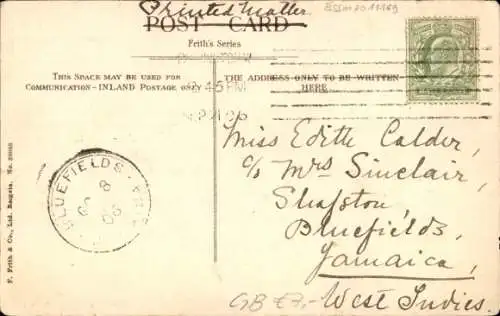 Printed Matter
POST CARD
Frith's Series
THIS SPACE MAY BE USED FOR
COMMUNICATION - INLAND POSTAGE ONLY
THE ADDRESS ONLY TO BE WRITTEN
HERE
45 PM
Miss Edith Calder,
c/o Mrs Sinclair,
Shafston
Bluefields,
Jamaica,
West Indies
BLUEFIELDS
8
06
F. Frith & Co., Ltd. Reigate. No.
GB £7,-